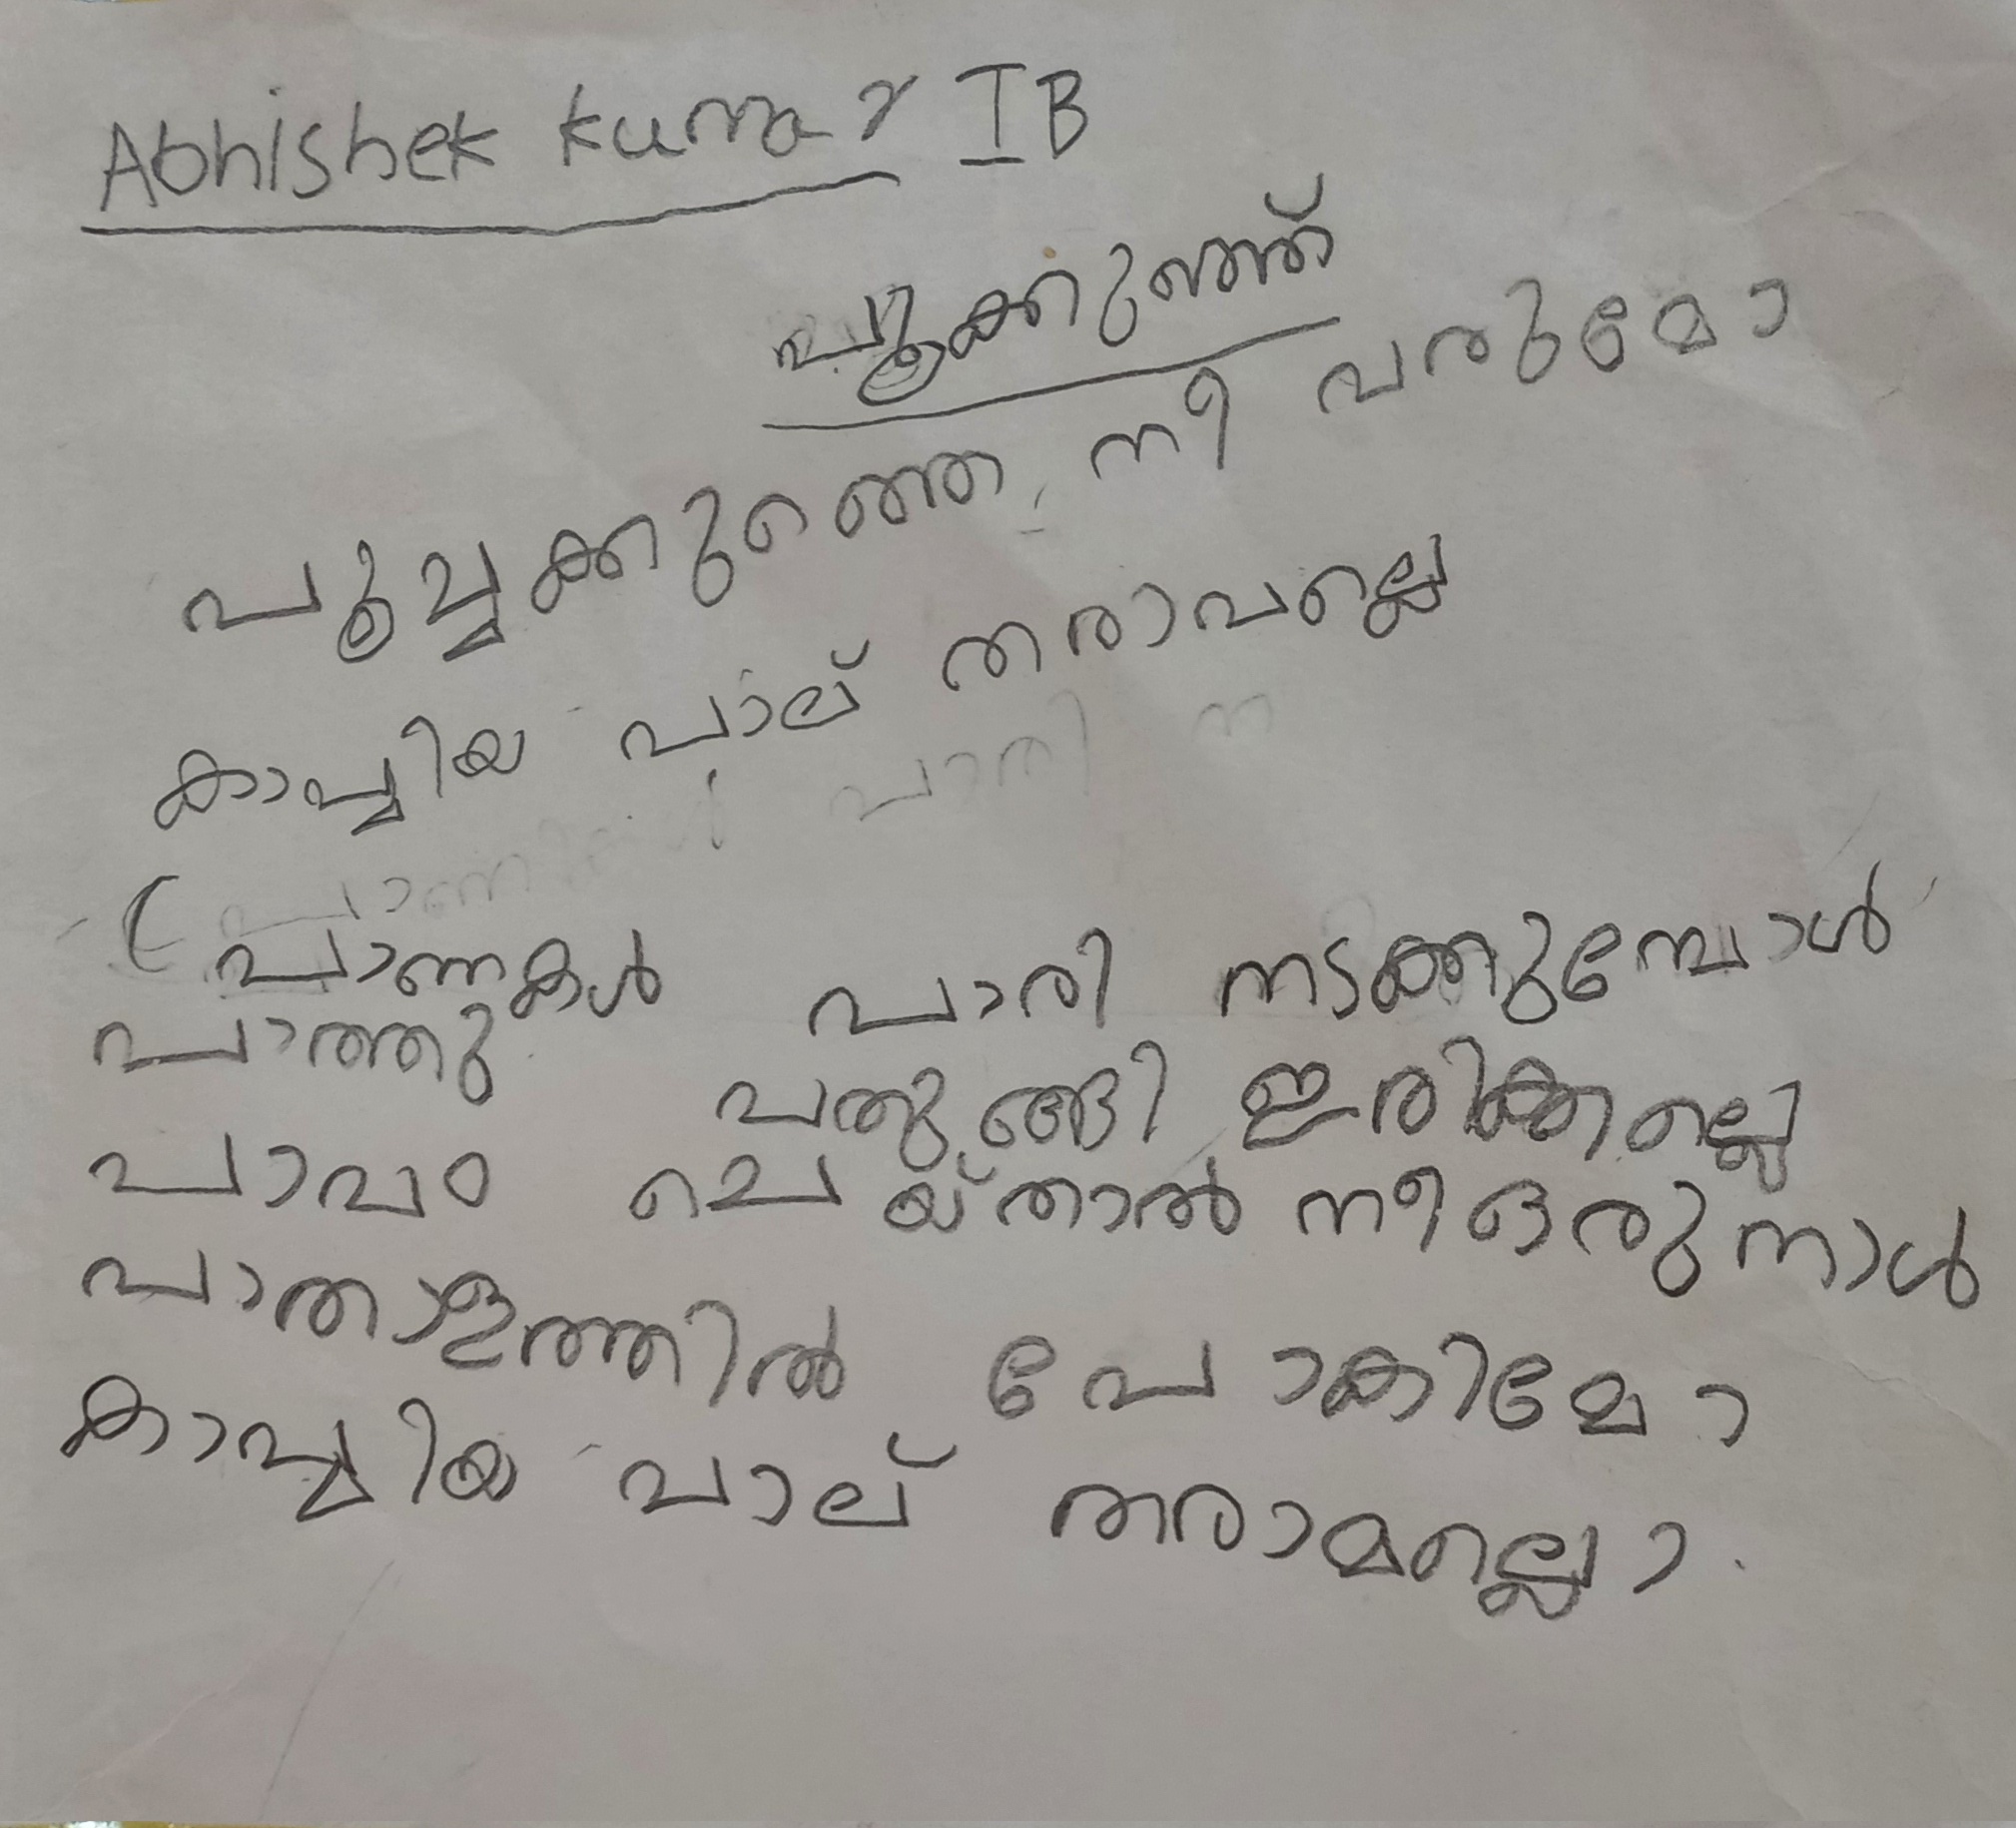 Abhishek Kumar I B
പൂക്കുഞ്ഞ്
പൂച്ചക്കുഞ്ഞെ നീ വരുമോ
കാച്ചിയ പാല് തരാവല്ലെ
പാറ്റകൾ പാരി നടക്കുമ്പോൾ
പാത്തു പതുങ്ങി ഇരിക്കല്ലെ
പാവം ചെയ്താൽ നീ ഒരു നാൾ
പാതാളത്തിൽ പോകിമോ
കാച്ചിയ പാല് തരാമല്ലൊ.